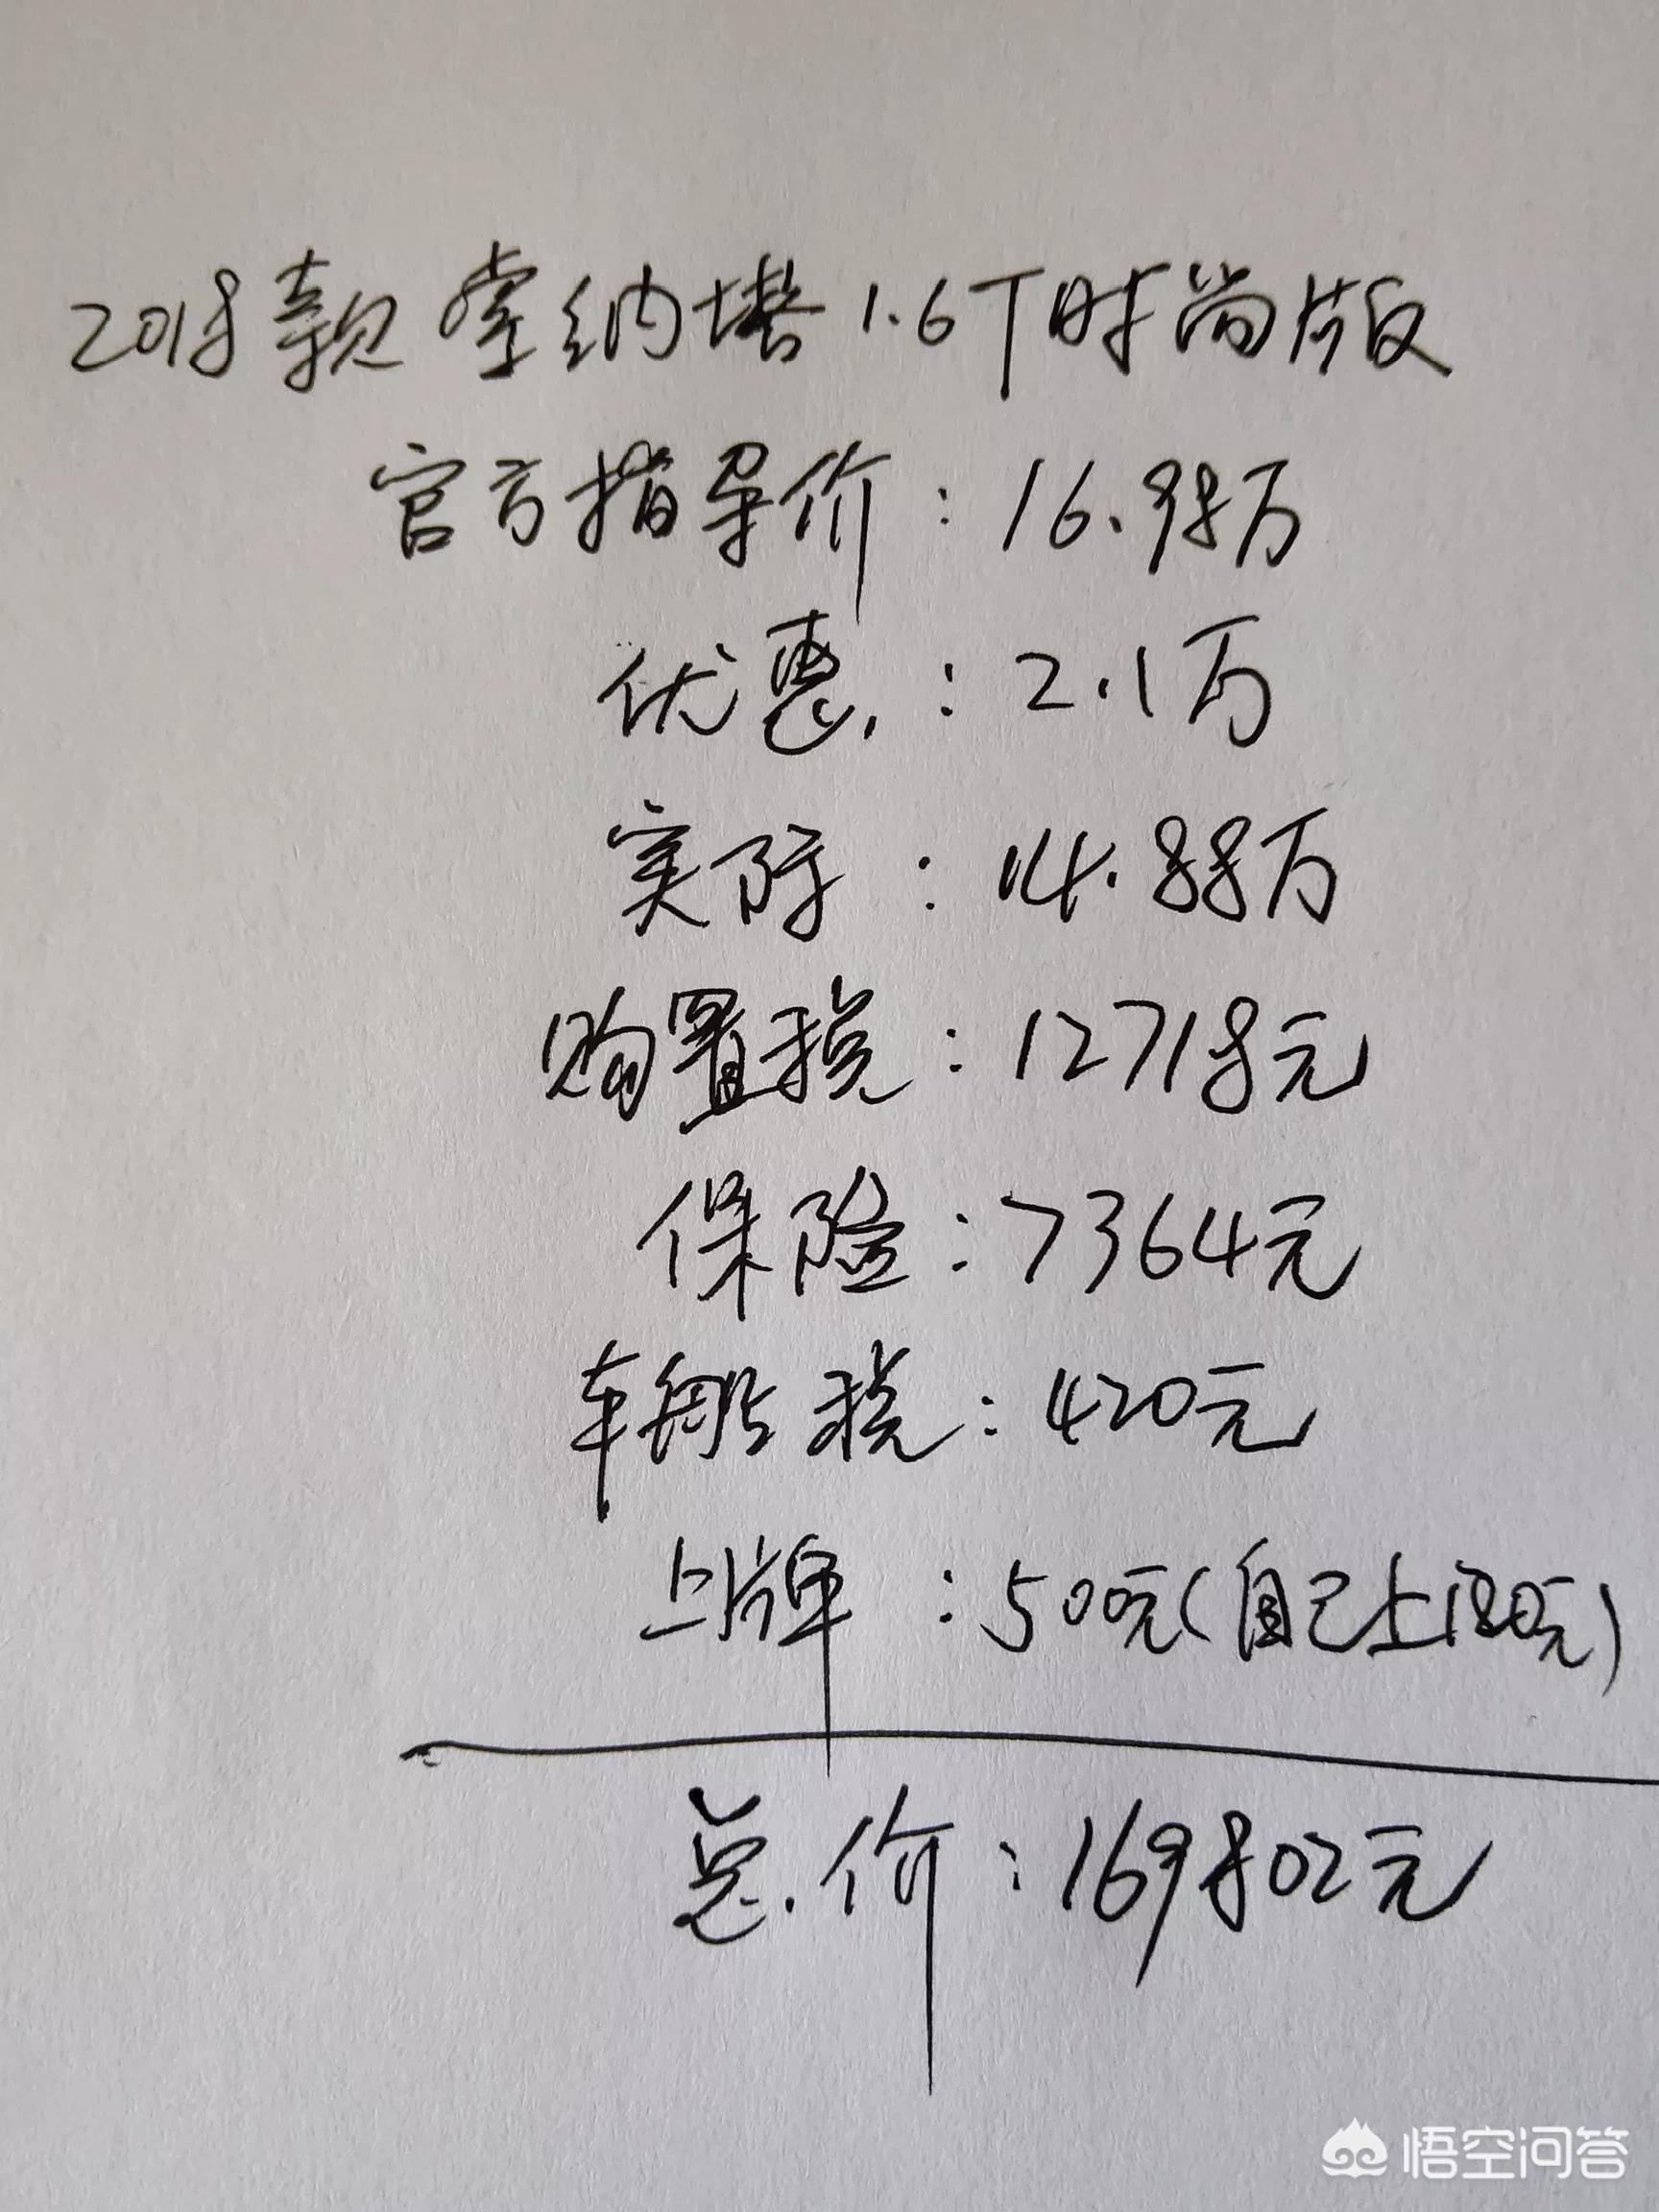 2018款索纳塔1.6T时尚版
官方指导价：16.98万
优惠：2.1万
实际：14.88万
购置税：12718元
保险：7364元
车船税：420元
上牌：500元(自己上180元)
总价：169802元
悟空问答